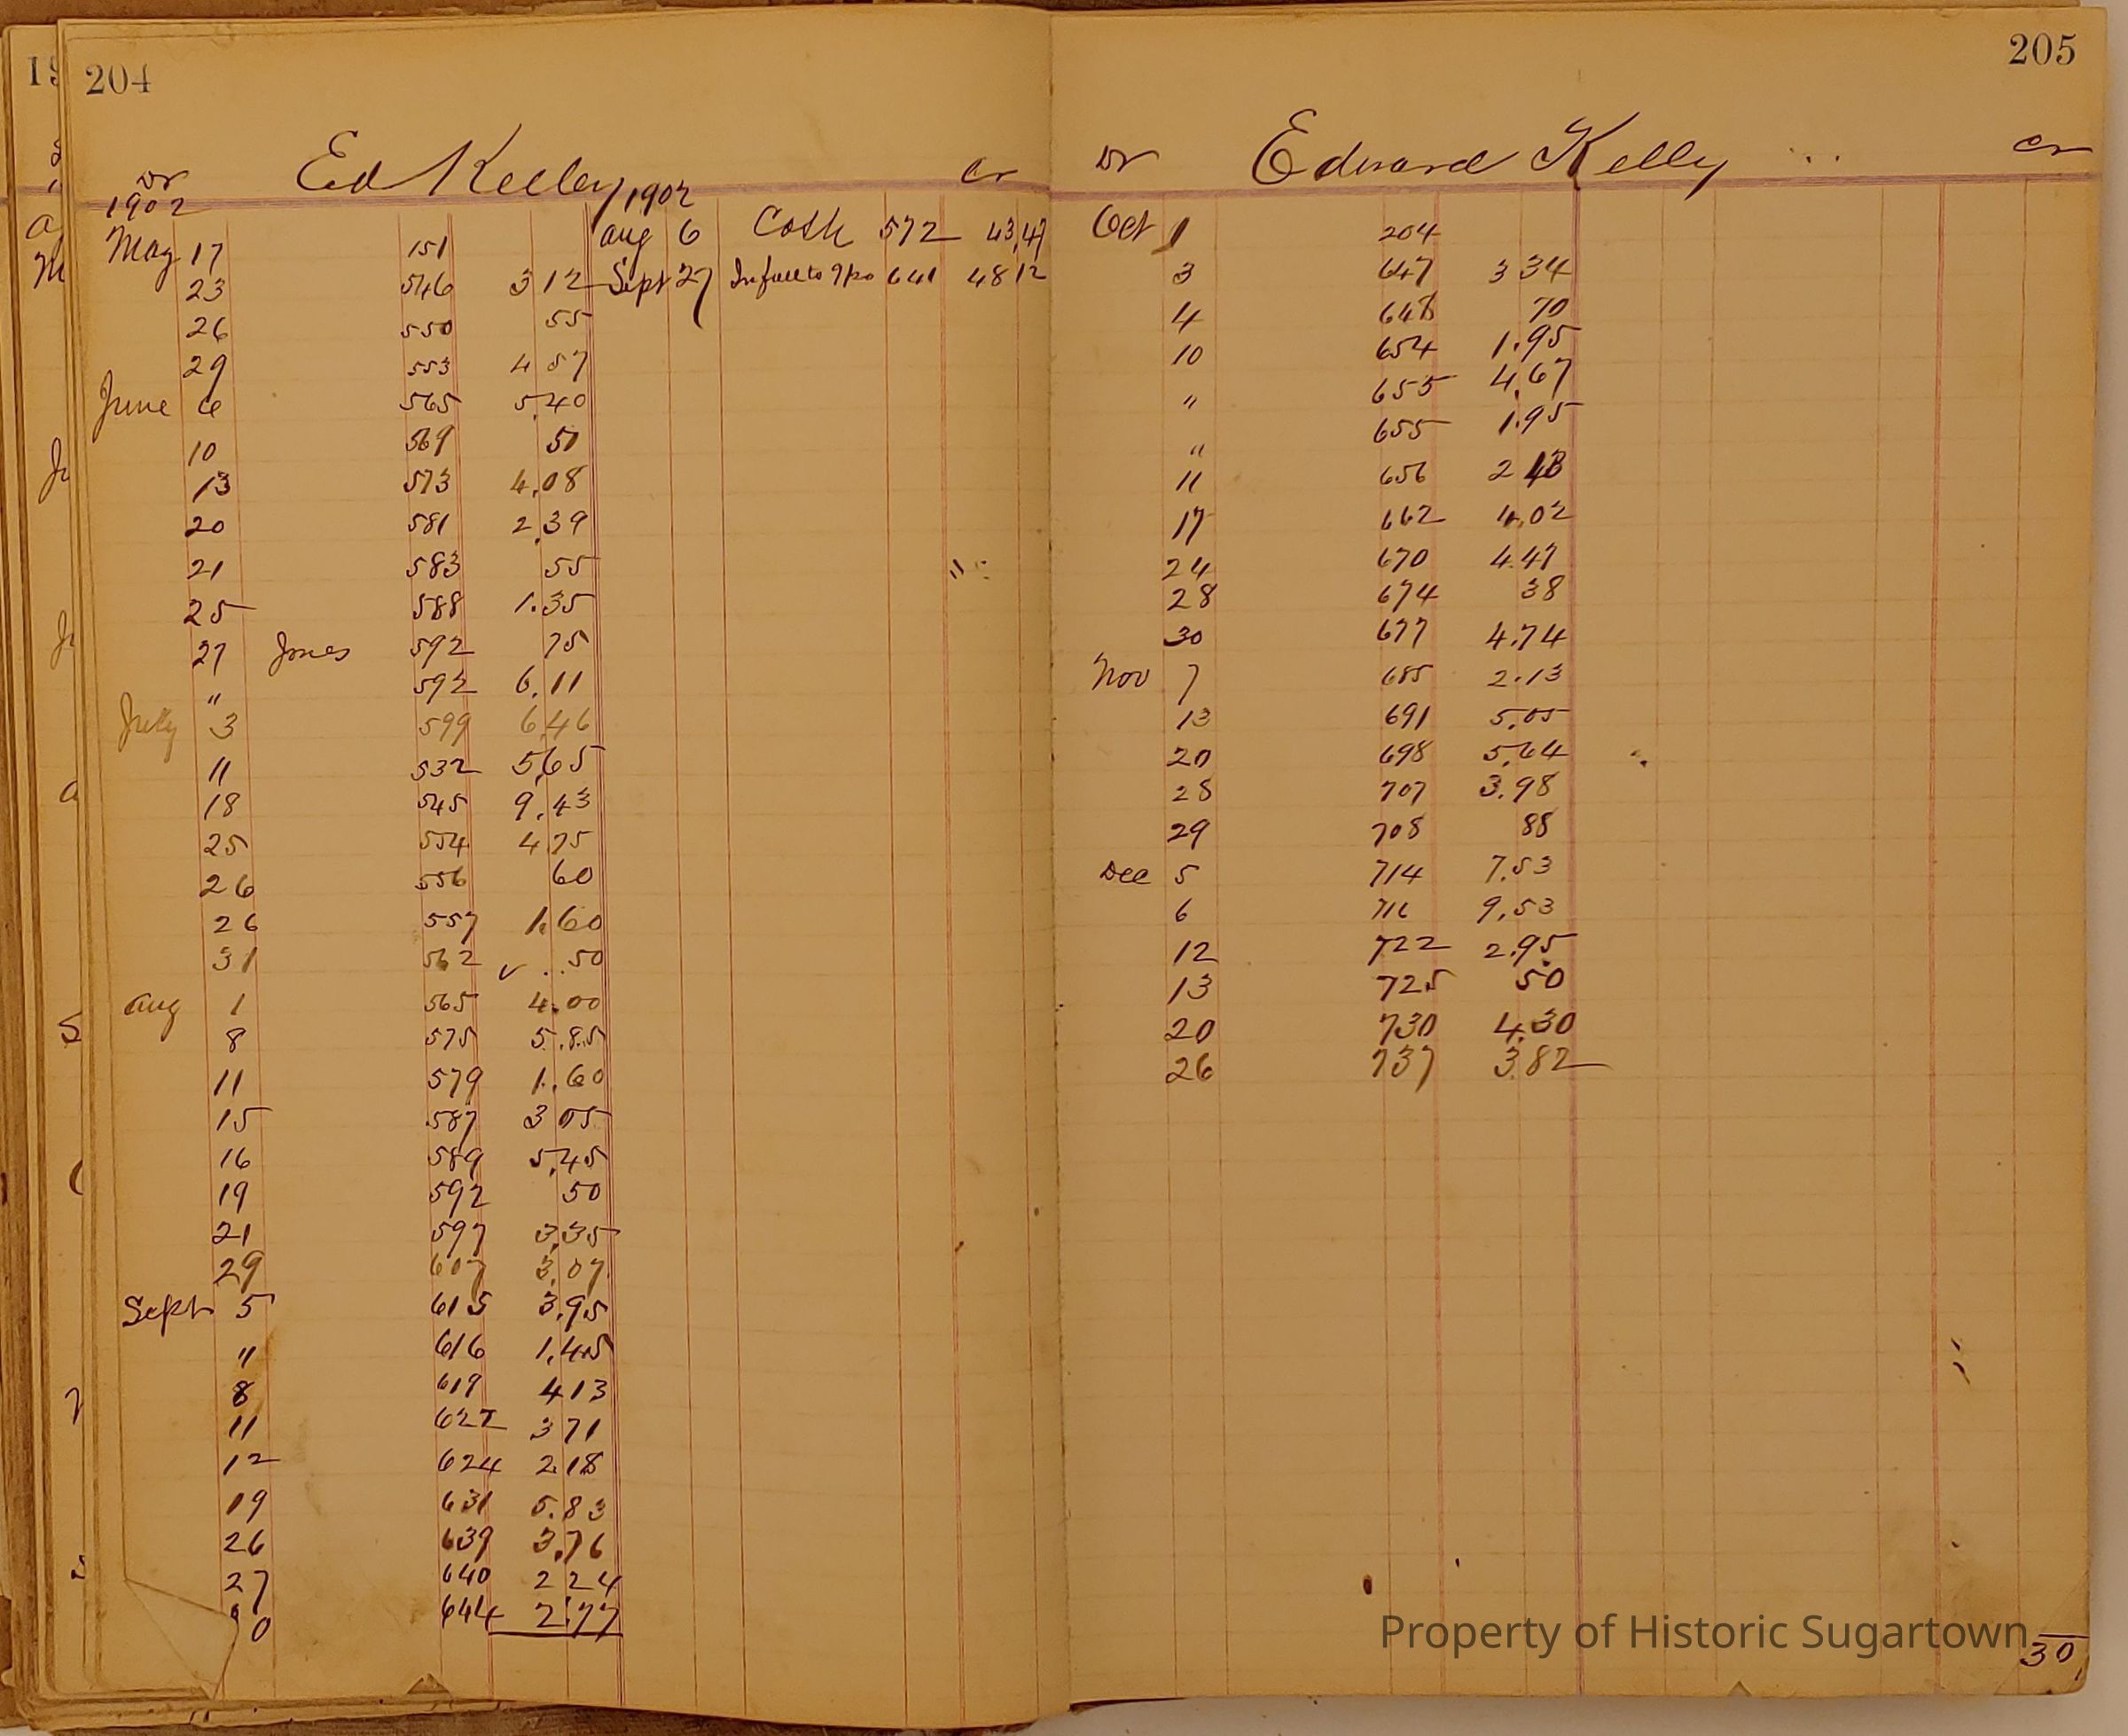 204
Dr Ed Kelley Cr
1902 1902
May 17 151 Aug 6 Cash 572 43,47
23 546 3 12 Sept 27 641 48 12
26 550 55
29 553 4 57
June 6 565 5,40
10 569 50
13 573 4,08
20 581 2,39
21 583 55
25 588 1.35
27 Jones 592 75
" 592 6,11
July 3 599 6,46
11 532 5,65
18 545 9,43
25 554 4 75
26 556 60
26 557 1,60
31 562 50
Aug 1 565 4.00
8 575 5.85
11 579 1.60
15 587 3 05
16 589 5,45
19 592 50
21 597 3,35
29 607 3,07
Sept 5 615 3,95
" 616 1,45
8 619 4 13
11 622 3 71
12 624 2.18
19 631 5.83
26 639 3,76
27 640 2 24
0 644 2.77
205
Dr Edward Kelly Cr
Oct 1 204
3 647 3 34
4 648 70
10 654 1.95
" 655 4,67
" 655 1.95
11 656 2
17 662 4,02
24 670 4.47
28 674 38
30 677 4.74
Nov 7 685 2.13
13 691 5.05
20 698 5,64
28 707 3.98
29 708 88
Dec 5 714 7.53
6 716 9,53
12 722 2.95
13 725 50
20 730 4.30
26 737 3.82
Property of Historic Sugartown
30